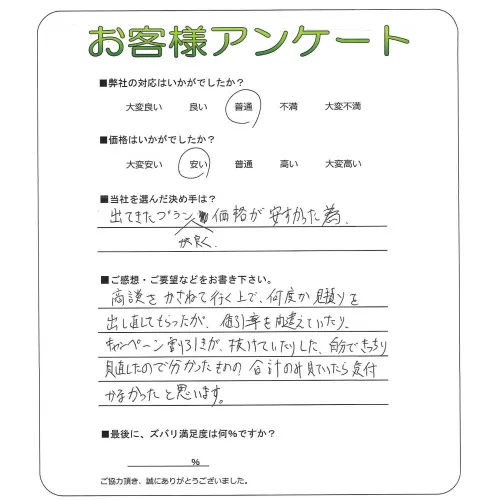 お客様アンケート
■弊社の対応はいかがでしたか?
大変良い 良い 普通 不満 大変不満
■価格はいかがでしたか?
大変安い 安い 普通 高い 大変高い
■当社を選んだ決め手は?
出てきたプラン 価格が安すかった為.
が良く、
■ご感想・ご要望などをお書き下さい。
商談をかさねて行く上で、何度か見積りを
出し直してもらったが、値引率を間違えていたり、
キャンペーン割り引きが、抜けていたりした、自分できっちり
見直したので分かったものの合計のみ見ていたら気付
かなかったと思います。
■最後に、ズバリ満足度は何%ですか?
%
ご協力頂き、誠にありがとうございました。